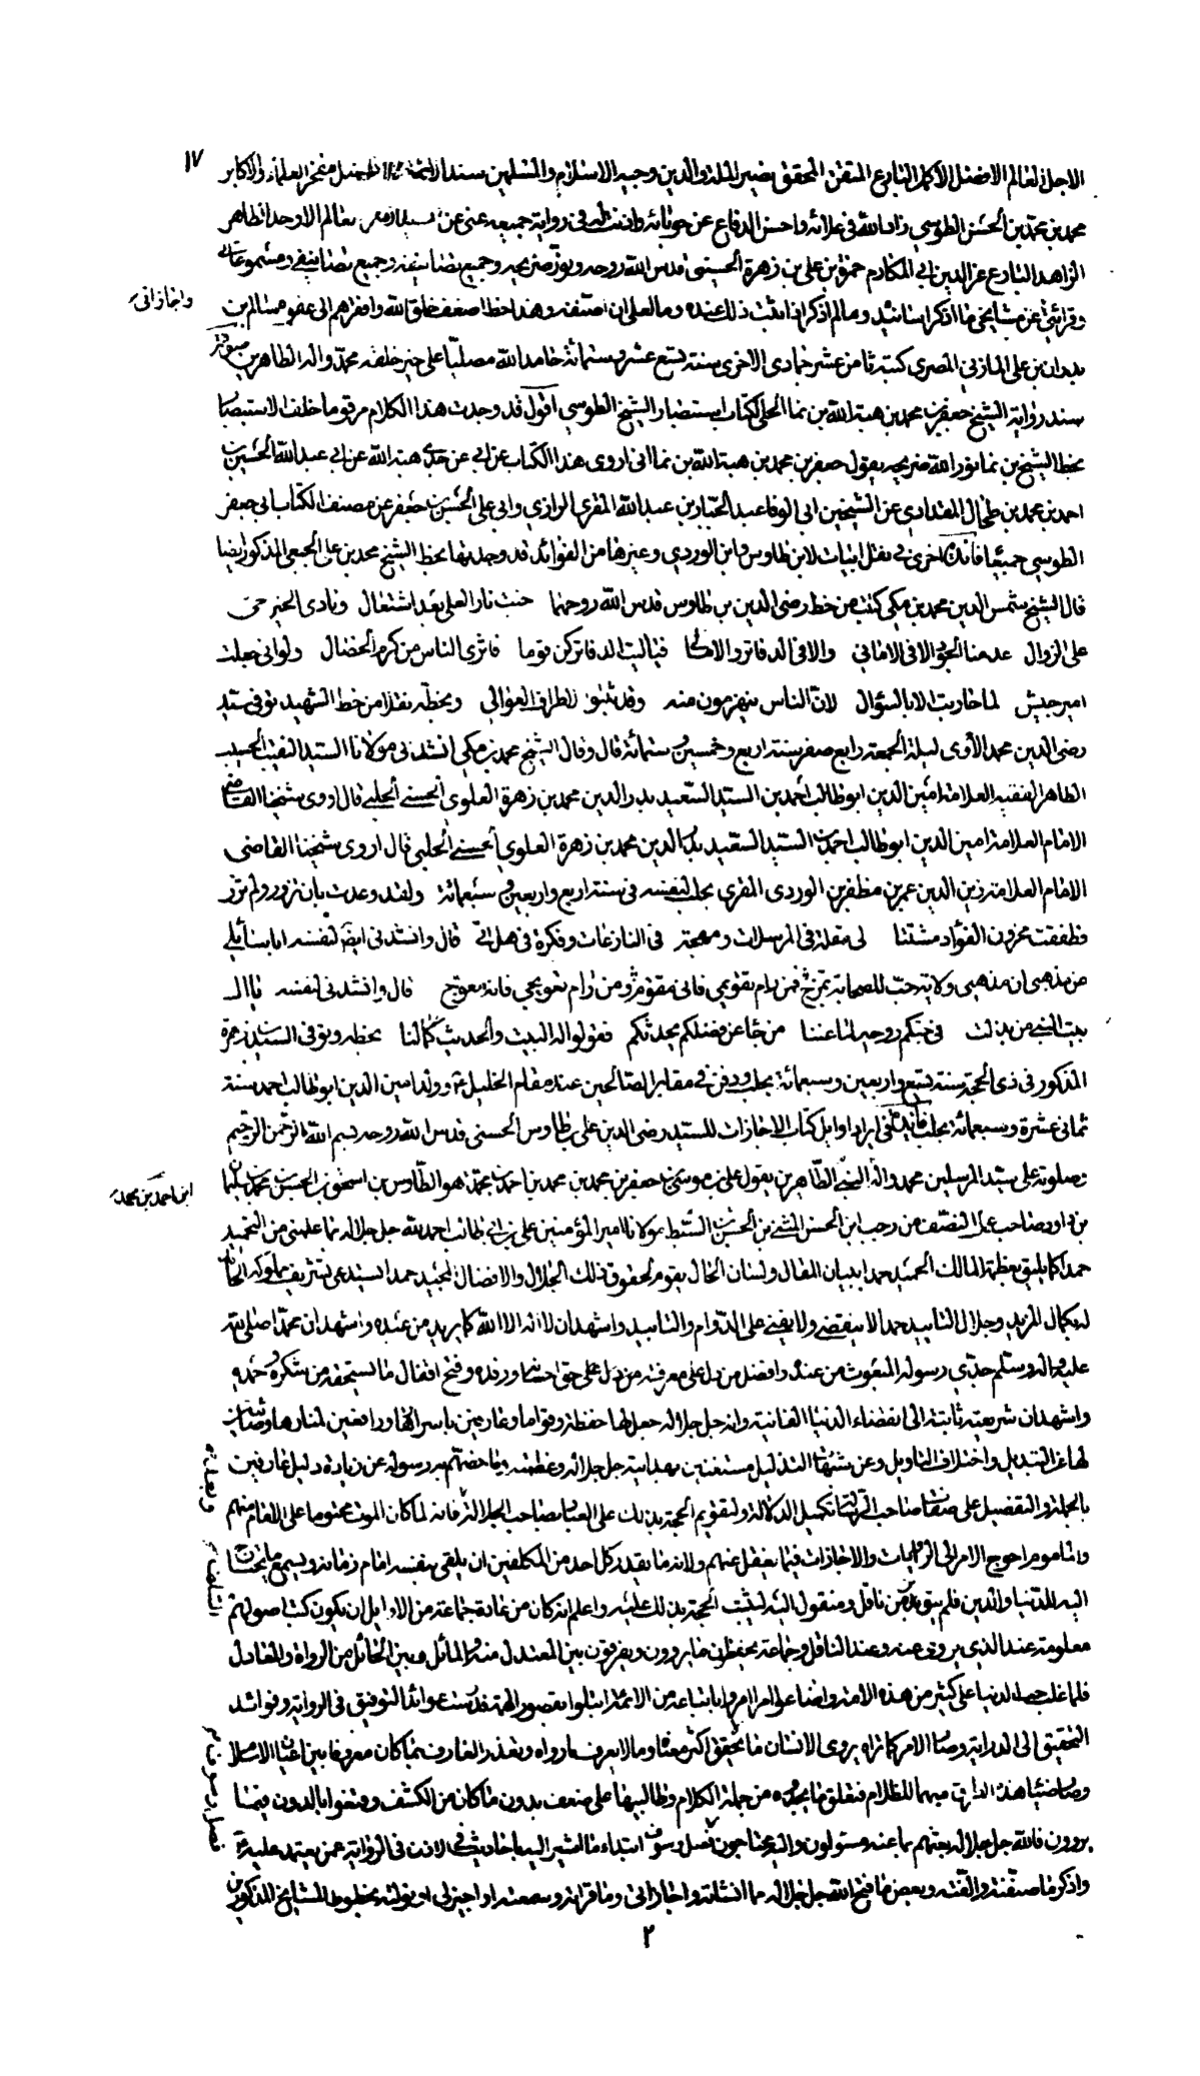 ١٧
الاجل العالم الافضل الاكمل البارع المتقن المحقق نصير الملة والدين وجيه الاسلام والمسلمين سند الائمة مفخر العلماء والاكابر
محمد بن محمد بن الحسن الطوسي زاد الله في علائه واحسن الدفاع عن حوبائه واذنت له في رواية جميعه عني عن العالم الاوحد الطاهر
الزاهد البارع عز الدين ابي المكارم حمزة بن علي بن زهرة الحسيني قدس الله روحه ونور ضريحه وجميع تصانيفه وجميع تصانيفي ومسموعاتي
وقراءتي واجازاتي عن مشايخي ما اذكر اسانيده وما لم اذكر اذا ثبت ذلك عنده وما لعلي ان اصنفه وهذا خط اضعف خلق الله وافقرهم الى عفوه سالم بن
بدران بن علي المازني المصري كتبه ثامن عشر جمادى الاخرى سنة تسع عشر وستمائة حامدا لله مصليا على خير خلقه محمد واله الطاهرين صورة
سند رواية الشيخ جعفر بن محمد بن هبة الله بن نما الحلي لكتاب استبصار الشيخ الطوسي اقول قد وجدت هذا الكلام مرقوما خلف الاستبصار
بخط الشيخ بن نما نور الله ضريحه يقول جعفر بن محمد بن هبة الله بن نما اني اروي هذا الكتاب عن ابي عن جدي هبة الله عن ابي عبد الله الحسين بن
احمد بن محمد بن طحال المقدادي عن الشيخين ابي الوفا عبد الجبار بن عبد الله المقري الرازي وابي علي الحسن بن جعفر عن مصنف الكتاب ابي جعفر
الطوسي جميعا فائدة اخرى في نقل ابيات لابن طاوس وابن الوردي وغيرها من الفوائد قد وجدتها بخط الشيخ محمد بن علي الجبعي المذكور ايضا
قال الشيخ شمس الدين محمد بن مكي كتب من خط رضي الدين بن طاوس قدس الله روحهما خبت نار العلى بعد اشتعال ونادى الخير حي
على الزوال عدمنا الجود الا في الاماني والا في الدفاتر والامالي فيا ليت الدفاتر كن قوما فاثرى الناس من كرم الخصال ولو اني جعلت
امير جيش لما حاربت الا بالسؤال لان الناس ينهزمون منه وقد ثبتوا لاطراف العوالي وبخطه نقلا من خط الشهيد توفي سيد
رضي الدين محمد الآوى ليلة الجمعة رابع صفر سنة اربع وخمسين وستمائة قال وقال الشيخ محمد بن مكي انشدني مولانا السيد النقيب الحسيب
الطاهر الفقيه العلامة امين الدين ابو طالب احمد بن السيد السعيد بدر الدين محمد بن زهرة العلوي الحسيني الحلبي قال اروى شيخنا القاضي
الامام العلامة امين الدين ابو طالب احمد بن السيد السعيد بدر الدين محمد بن زهرة العلوي الحسيني الحلبي قال اروى شيخنا القاضي
الامام العلامة زين الدين عمر بن مظفر بن الوردي المقري بحلب لنفسه في سنة اربع واربعين وسبعمائة ولقد وعدت بان تزور ولم تزر
فطفقت محزون الفؤاد مشتتا لي مقلة في المرسلات ومهجة في النازعات وفكرة في هل اتى قال وانشدني ايضا لنفسه ايا سائلي
عن مذهبي ان مذهبي ولاية حب للصحابة تمزج فمن رام تقويمي فاني مقوم ومن رام تعويجي فاني معوج قال وانشدني لنفسه يا ال
بيت النبي من بذلت في حبكم روحه لما غبنا من جاء عن فضلكم يحدثكم فقولوا له البيت والحديث لنا بخطه وتوفي السيد بن زهرة
المذكور في ذي الحجة سنة تسع واربعين وسبعمائة بحلب ودفن في مقابر الصالحين عند مقام الخليل ع وولد امين الدين ابو طالب احمد سنة
ثماني عشرة وسبعمائة بحلب فائدة في ايراد اوايل كتاب الاجازات للسيد رضي الدين علي بن طاوس الحسني قدس الله روحه بسم الله الرحمن الرحيم
وصلوته على سيد المرسلين محمد واله الطاهرين يقول علي بن موسى بن جعفر بن محمد بن محمد بن احمد بن محمد هو الطاوس بن اسحق بن الحسن بن محمد بن سليمان
بن داود صاحب عمل النصف من رجب ابن الحسن المثنى بن الحسن السبط بن مولانا امير المؤمنين علي بن ابي طالب احمد الله جل جلاله بما علمني من التحميد
حمدا كما يليق بعظمة المالك الحميد حمدا ببيان المقال ولسان الحال يقوم بحقوق ذلك الجلال والافضال المجيد حمدا
له بكمال المزيد وجلال التأبيد حمدا لا ينقضي ولا يفنى على الدوام والتأبيد واشهد ان لا اله الا الله كما يريد من عبيده واشهد ان محمدا صلى الله
عليه واله وسلم جدي رسوله المبعوث من عنده وافضل من دل على معرفته من دل على حق احسانه ورفده وفتح اقفال ما يستحقه من شكره وحمده
واشهد ان شريعته ثابتة الى انقضاء الدنيا الفانية وانه جل جلاله جعل لها حفظة وقواما وعارفين باسرارها ورافعين لمنارها وصائنين
لها عن التبديل واختلاف التأويل وعن شبهات التذليل مستغنين بهداية جل جلاله وعظمته وبما خصهم به رسوله عن زيادة دليل عارفين
بالجملة والتفصيل على صفات صاحب الرسالة تكميل الدلالة ولتقويم الحجة بذلك على العباد لصاحب الجلالة وبعد فانه لما كان الموت محتوما على الامام منهم
والماموم احوج الامر الى الروايات والاجازات فيما ينقل عنهم ولانه ما يقدر كل احد من المكلفين ان يلقى بنفسه امام زمانه ويسمع ما يحتاج
اليه للدنيا والدين فلم يبق بد من ناقل ومنقول اليه ليثبت الحجة بذلك عليه واعلم انه كان من عادة جماعة من الاوايل ان يكون كتب اصولهم
معلومة عند الذي يروي عنه وعند الناقل وجماعة يحفظون ما يروون ويفرقون بين المعتدل منه والمائل وبين الحائل من الرواة والعادل
فلما غلب حب الدنيا على كثير من هذه الامة واضاعوا ما امروا باتباعه من الائمة ابتلوا بقصور الهمة عوائد التوفيق في الرواية وفوائد
التحقيق الى الدراية وصار الامر كما تراه يروى الانسان ما يحقق اكثر معناه وما لا يعرف ما رواه وتعذر العارف بما كان معروفا بين اعيان الاسلام
وصار ضياء هذه الدار في مبهما للظلام من جملة الكلام وطالبيها على ضعف بدون ما كان من الكشف وقنعوا بالدون فيما
يروون فالله جل جلاله يجيهم بما عنه مسئولون واليه محتاجون فصل وسوف ابتداء ما اشير اليه باحاديث في الاذن في الرواية عمن يعتمد عليه
واذكر ما صنفته والفته وبعض ما فتح الله جل جلاله مما انشاته واجازاتي وما قراته وسمعته او اجيز لي او نولته بخطوط المشايخ المذكورين
٢
واجازاتي
ابن احمد بن محمد
وبعد
السلف